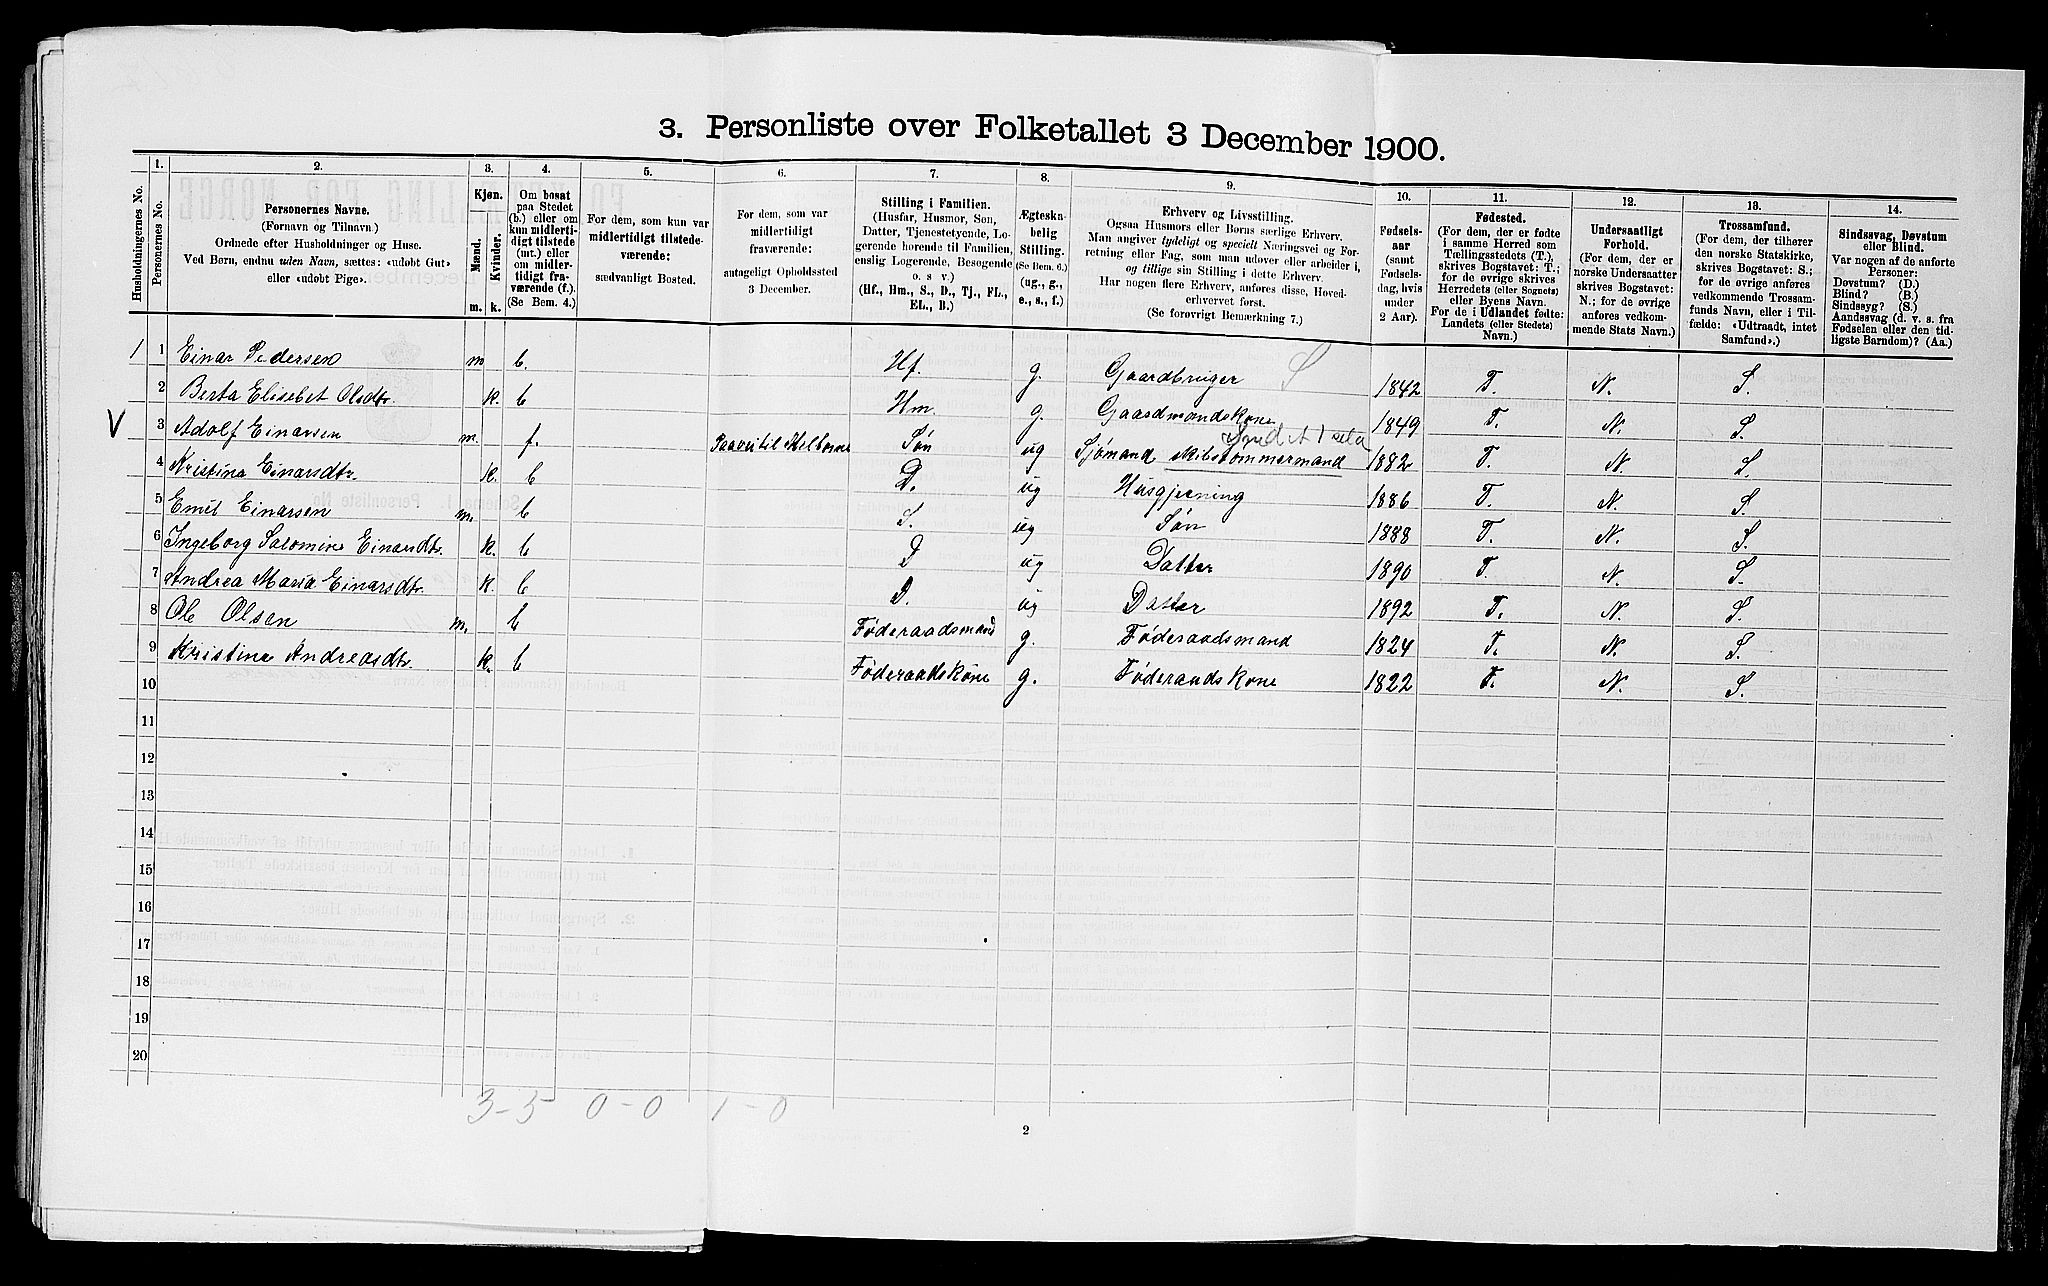 3. Personliste over Folketallet 3 December 1900.
1. 2. 3. 4. 5. 6. 7. 8. 9. 10. 11. 12. 13. 14.
Husholdningernes No.
Personernes No.
Personernes Navne.
(Fornavn og Tilnavn.)
Ordnede efter Husholdninger og Huse.
Ved Børn, endnu uden Navn, sættes: «udobt Gut»
eller «udobt Pige».
Kjøn.
Mænd.
Kvinder.
m. k.
Om bosat
paa Stedet
(b.) eller om
kun midlerti-
digt tilstede
(mt.) eller
om midler-
tidigt fra-
værende (f.).
(Se Bem. 4.)
For dem, som kun var
midlertidigt tilstede-
værende:
sædvanligt Bosted.
For dem, som var
midlertidigt
fraværende:
antageligt Opholdssted
3 December.
Stilling i Familien.
(Husfar, Husmor, Søn,
Datter, Tjenestetyende, Lo-
gerende hørende til Familien,
enslig Logerende, Besøgende
o. s. v.)
(Hf., Hm., S., D., Tj., FL.,
EL., B.)
Ægteska-
belig
Stilling.
(Se Bem. 6.)
(ug., g.,
e., s., f.)
Erhverv og Livsstilling.
Ogsaa Husmors eller Børns særlige Erhverv.
Man angiver tydeligt og specielt Næringsvei og For-
retning eller Fag, som man udover eller arbeider i,
og tillige sin Stilling i dette Erhverv.
Har nogen flere Erhverv, anføres disse, Hoved-
erhvervet først.
(Se forøvrigt Bemærkning 7.)
Fødsels-
aar
(samt
Fødsels-
dag, hvis
under
2 Aar).
Fødested.
(For dem, der er fødte
i samme Herred som
Tællingsstedets (T.),
skrives Bogstavet: T.;
for de øvrige skrives
Herredets (eller Sognets)
eller Byens Navn.
For de i Udlandet fødte:
Landets (eller Stedets)
Navn.)
Undersaatligt
Forhold.
(For dem, der er
norske Undersaatter
skrives Bogstavet:
N.; for de øvrige
anføres vedkom-
mende Stats Navn.)
Trossamfund.
(For dem, der tilhører
den norske Statskirke,
skrives Bogstavet: S.;
for de øvrige anføres
vedkommende Trossam-
funds Navn, eller i Til-
fælde: «Udtraadt, intet
Samfund».)
Sindssvag, Døvstum
eller Blind.
Var nogen af de anførte
Personer:
Døvstum? (D.)
Blind? (B.)
Sindssyg? (S.)
Aandssvag (d. v. s. fra
Fødselen eller den tid-
ligste Barndom)? (Aa.)
1 1 Einar Pedersen m b. Hf. g. Gaardbruger S 1842 T. N. S.
2 Berta Elisebet Olsdtr. k. b Hm. g. Gaardmandskone 1849 T. N. S.
V 3 Adolf Einarsen m. f. Søn ug Sjømand skibstømmermand 1882 T. N. S.
4 Kristina Einarsdtr. k. b D. ug Husgjerning 1886 T. N. S.
5 Emil Einarsen m. b S. ug Søn 1888 T. N. S.
6 Ingeborg Salomine Einarsdtr. k. b D ug Datter 1890 T. N. S.
7 Andrea Maria Einarsdtr. k. b D. ug Datter 1892 T. N. S.
8 Ole Olsen m. b Føderaadsmand g. Føderaadsmand 1824 T. N. S.
9 Kristina Andreasdtr. k. b Føderaadskone g. Føderaadskone 1822 T. N. S.
10
11
12
13
14
15
16
17
18
19
20
3-5 0-0 1-0
2